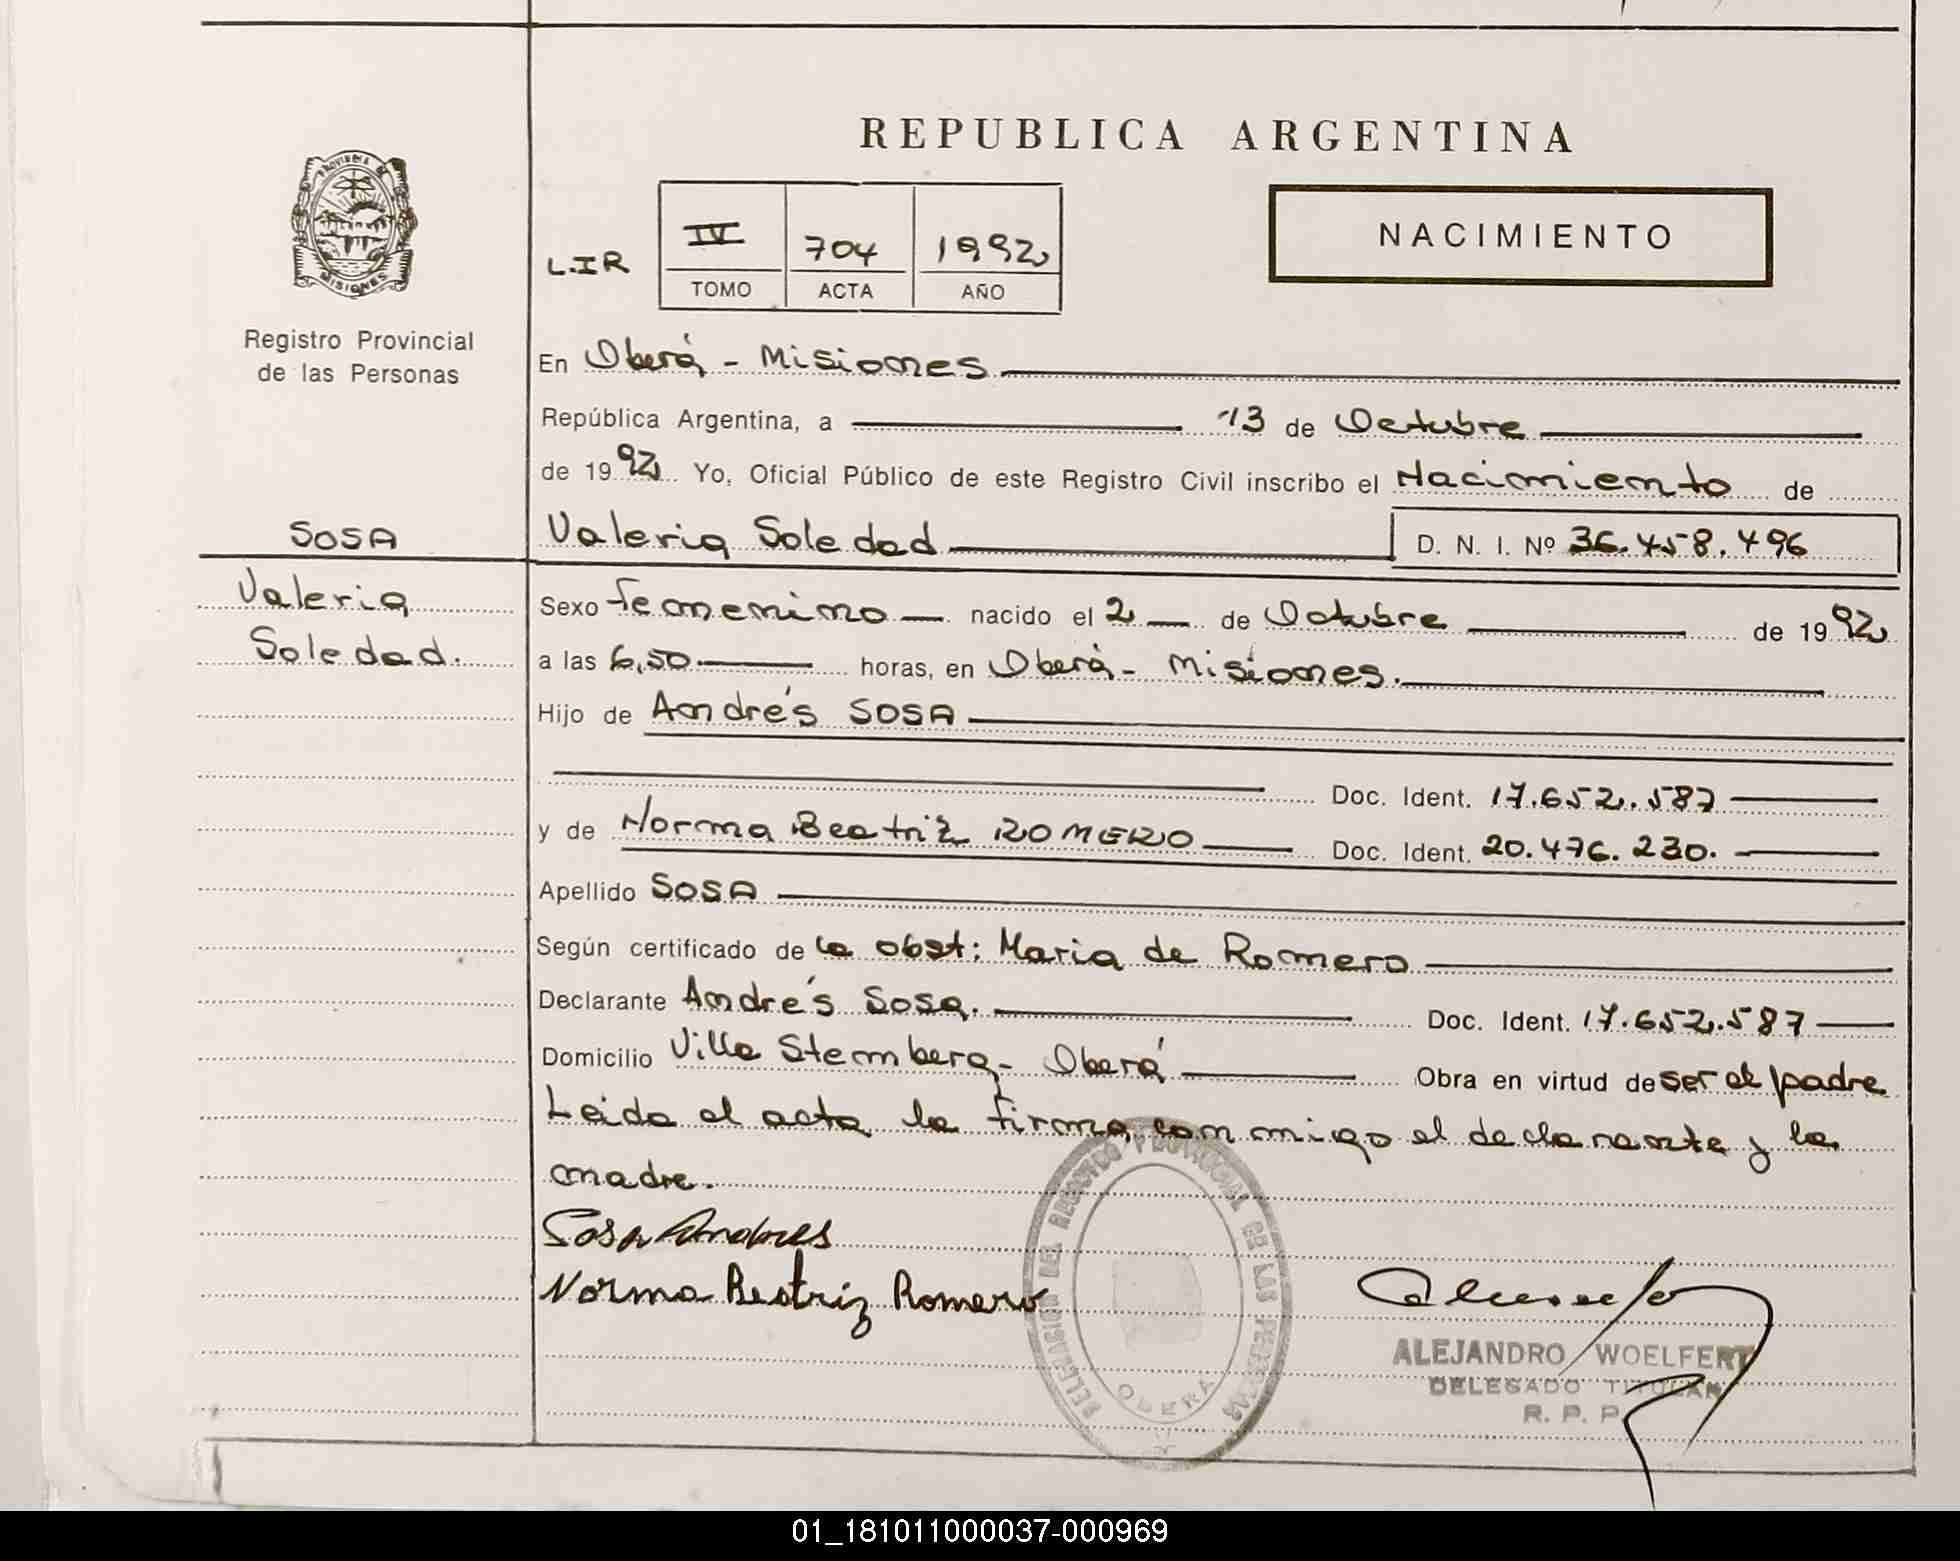 REPUBLICA ARGENTINA
PROVINCIA DE
MISIONES
Registro Provincial
de las Personas
L.I.R
IV 704 1992
TOMO ACTA AÑO
NACIMIENTO
En Oberá - Misiones
República Argentina, a 13 de Octubre
de 1992 Yo, Oficial Público de este Registro Civil inscribo el Nacimiento de
SOSA
Valeria Soledad D. N. I. Nº 36.458.496
Valeria
Soledad.
Sexo femenino nacido el 2 de Octubre de 1992
a las 6,50 horas, en Oberá - Misiones.
Hijo de Andrés SOSA
Doc. Ident. 17.652.587
y de Norma Beatriz ROMERO Doc. Ident. 20.476.230.
Apellido SOSA
Según certificado de la obst: Maria de Romero
Declarante Andrés Sosa. Doc. Ident. 17.652.587
Domicilio Villa Stemberg - Oberá Obra en virtud de ser el padre
Leida el acta la firma conmigo el declarante y la
madre.
Sosa Andres
Norma Beatriz Romero
DELEGACION DEL REGISTRO PROVINCIAL DE LAS PERSONAS
OBERA
ALEJANDRO WOELFERT
DELEGADO TITULAR
R. P. P.
01_181011000037-000969